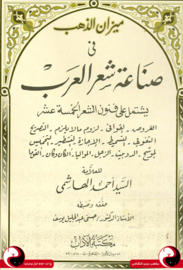 ميزان الذهب
في
صناعة شعر العرب
يشتمل على فنون الشعر الخمسة عشر
القريض، القوافي، لزوم مالا يلزم، التصريع
التفويف، التسميط، الإجازة، التشطير، التخميس
الموشح، الدوبيت، الزجل، المواليا، الكان وكان، القوما
للعلامة
السيد أحمد الهاشمي
حققه وضبطه
الأستاذ الدكتور / حسني عبد الجليل يوسف
مكتبة الآداب